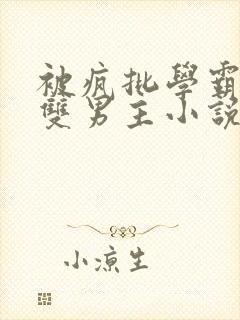 被疯批學霸
雙男主小說
小涼生